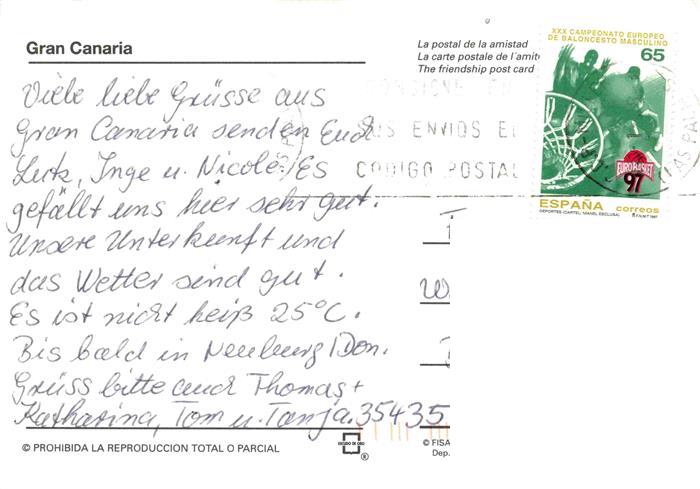 Gran Canaria
La postal de la amistad
La carte postale de l'amit
The friendship post card
XXX CAMPEONATO EUROPEO
DE BALONCESTO MASCULINO
65
EUROBASKET
97
ESPAÑA correos
DEPORTES (CARTEL: MANEL ESCLUSA)
EN
SUS ENVIOS EL
CODIGO POSTAL
LAS PAL
Viele liebe Grüsse aus
Gran Canaria senden Euch
Lutz, Inge u. Nicole. Es
gefällt uns hier sehr gut.
Unsere Unterkunft und
das Wetter sind gut.
Es ist nicht heiß 25°C.
Bis bald in Neuburg/Don.
Grüss bitte auch Thomas +
Katharina, Tom u. Tanja. 35435
© PROHIBIDA LA REPRODUCCION TOTAL O PARCIAL
ESCUDO DE ORO
®
© FISA
Dep.